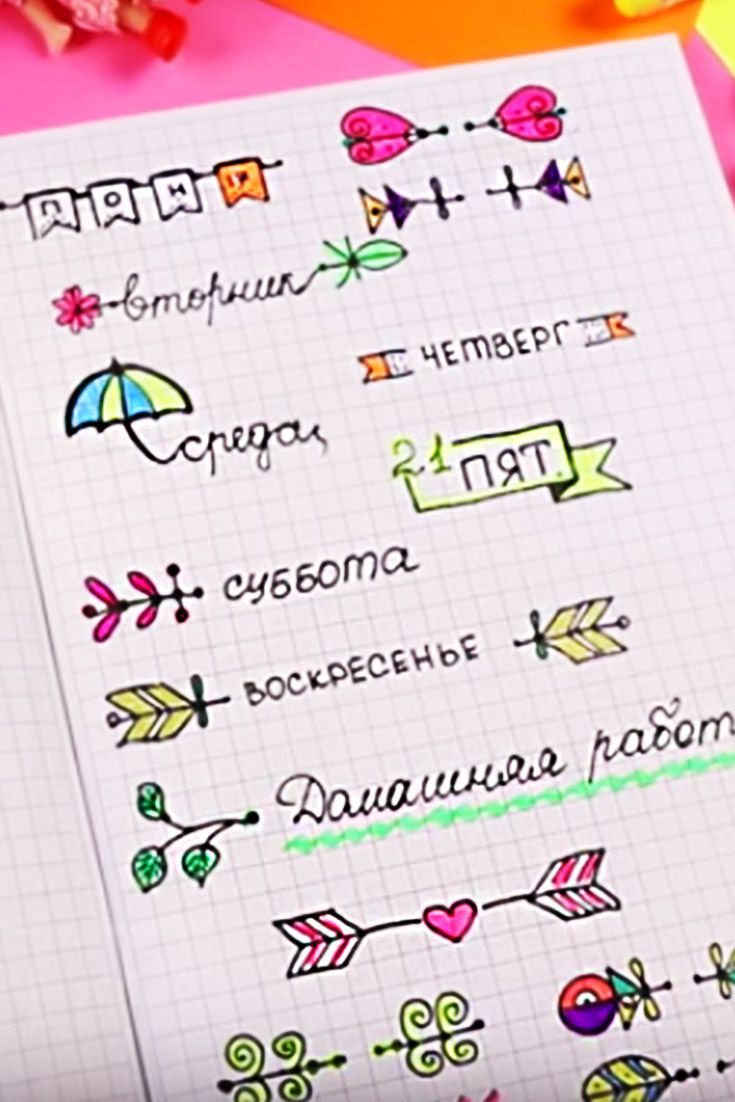 ПОН
вторник
ЧЕТВЕРГ
среда
21 ПЯТ.
суббота
ВОСКРЕСЕНЬЕ
Домашняя работ